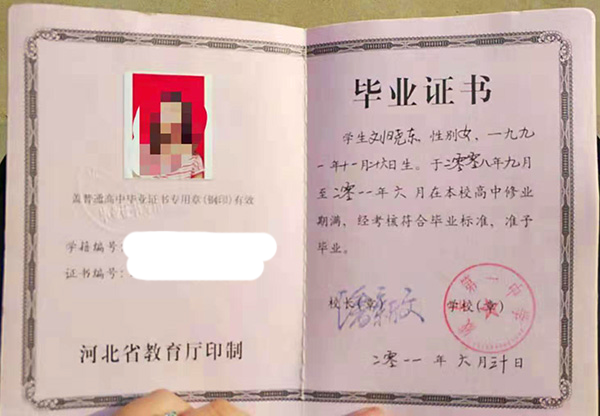 盖普通高中毕业证书专用章(钢印)有效
学籍编号:
证书编号:
河北省教育厅印制
毕业证书
学生刘晓东,性别女,一九九
一年十一月六日生。于二零零八年九月
至二零一一年六月在本校高中修业
期满,经考核符合毕业标准,准予
毕业。
校长(章)
学校(章)
第一中学
二零一一年六月三十日